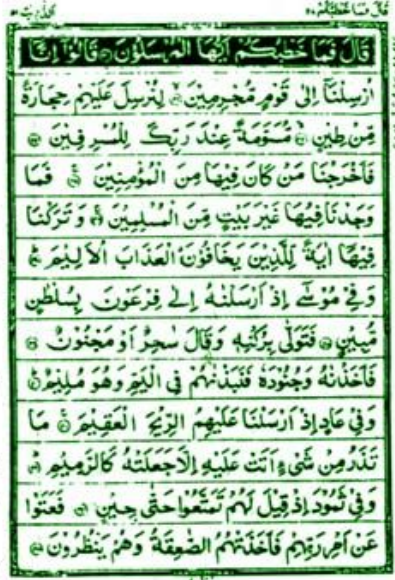 قال فما خطبكم ٢٧
الذّٰریٰت ٥١
قَالَ فَمَا خَطْبُكُمْ اَیُّهَا الْمُرْسَلُوْنَ قَالُوْۤا اِنَّاۤ
اُرْسِلْنَاۤ اِلٰی قَوْمٍ مُّجْرِمِیْنَ لِنُرْسِلَ عَلَیْهِمْ حِجَارَةً
مِّنْ طِیْنٍ مُّسَوَّمَةً عِنْدَ رَبِّكَ لِلْمُسْرِفِیْنَ
فَاَخْرَجْنَا مَنْ كَانَ فِیْهَا مِنَ الْمُؤْمِنِیْنَ فَمَا
وَجَدْنَا فِیْهَا غَیْرَ بَیْتٍ مِّنَ الْمُسْلِمِیْنَ وَتَرَكْنَا
فِیْهَاۤ اٰیَةً لِّلَّذِیْنَ یَخَافُوْنَ الْعَذَابَ الْاَلِیْمَ
وَفِیْ مُوْسٰۤی اِذْ اَرْسَلْنٰهُ اِلٰی فِرْعَوْنَ بِسُلْطٰنٍ
مُّبِیْنٍ فَتَوَلّٰی بِرُكْنِهٖ وَقَالَ سٰحِرٌ اَوْ مَجْنُوْنٌ
فَاَخَذْنٰهُ وَجُنُوْدَهٗ فَنَبَذْنٰهُمْ فِی الْیَمِّ وَهُوَ مُلِیْمٌ
وَفِیْ عَادٍ اِذْ اَرْسَلْنَا عَلَیْهِمُ الرِّیْحَ الْعَقِیْمَ مَا
تَذَرُ مِنْ شَیْءٍ اَتَتْ عَلَیْهِ اِلَّا جَعَلَتْهُ كَالرَّمِیْمِ
وَفِیْ ثَمُوْدَ اِذْ قِیْلَ لَهُمْ تَمَتَّعُوْا حَتّٰی حِیْنٍ فَعَتَوْا
عَنْ اَمْرِ رَبِّهِمْ فَاَخَذَتْهُمُ الصّٰعِقَةُ وَهُمْ یَنْظُرُوْنَ